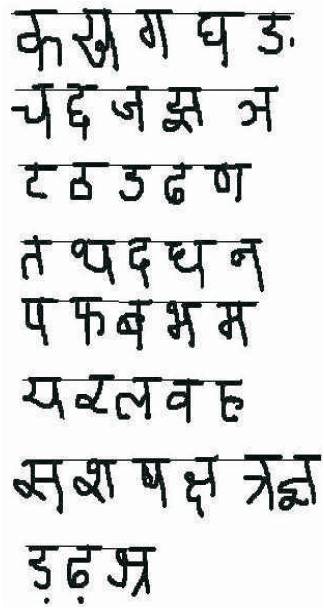 क ख ग घ ङ
च छ ज झ ञ
ट ठ ड ढ ण
त थ द ध न
प फ ब भ म
य र ल व ह
स श ष क्ष त्र ज्ञ
ड़ ढ़ श्र